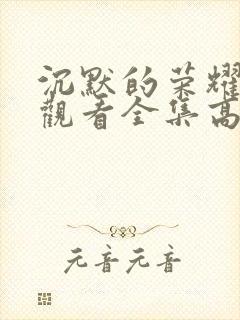 沉默的荣耀
觀看全集高
元音元音